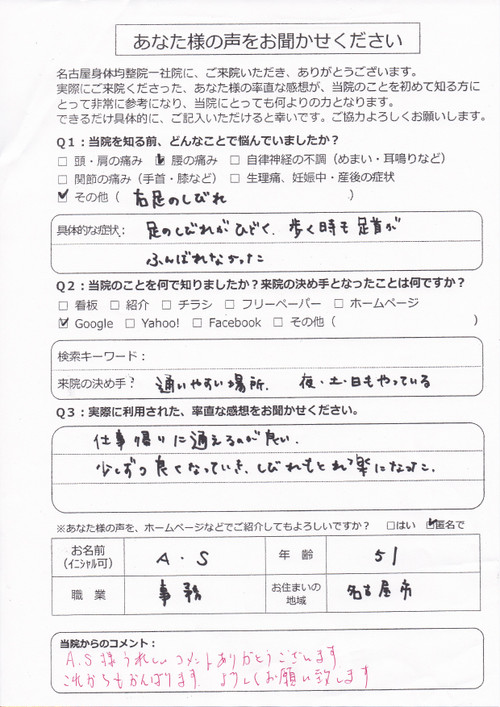 あなた様の声をお聞かせください
名古屋身体均整院一社院に、ご来院いただき、ありがとうございます。
実際にご来院くださった、あなた様の率直な感想が、当院のことを初めて知る方に
とって非常に参考になり、当院にとっても何よりの力となります。
できるだけ具体的に、ご記入いただけると幸いです。ご協力よろしくお願いします。
Q1：当院を知る前、どんなことで悩んでいましたか？
□ 頭・肩の痛み ☑ 腰の痛み □ 自律神経の不調（めまい・耳鳴りなど）
□ 関節の痛み（手首・膝など） □ 生理痛、妊娠中・産後の症状
☑ その他（ 右足のしびれ ）
具体的な症状： 足のしびれがひどく、歩く時も足首が
ふんばれなかった
Q2：当院のことを何で知りましたか？来院の決め手となったことは何ですか？
□ 看板 □ 紹介 □ チラシ □ フリーペーパー □ ホームページ
☑ Google □ Yahoo! □ Facebook □ その他（ ）
検索キーワード：
来院の決め手？ 通いやすい場所． 夜・土・日もやっている
Q3：実際に利用された、率直な感想をお聞かせください。
仕事帰りに通えるのが良い．
少しずつ良くなっていき、しびれもとれて楽になった．
※あなた様の声を、ホームページなどでご紹介してもよろしいですか？ □はい ☑匿名で
お名前 A・S 年 齢 51
（ｲﾆｼｬﾙ可）
職 業 事務 お住まいの地域 名古屋市
当院からのコメント：
A.S様うれしいコメントありがとうございます
これからもがんばります よろしくお願い致します